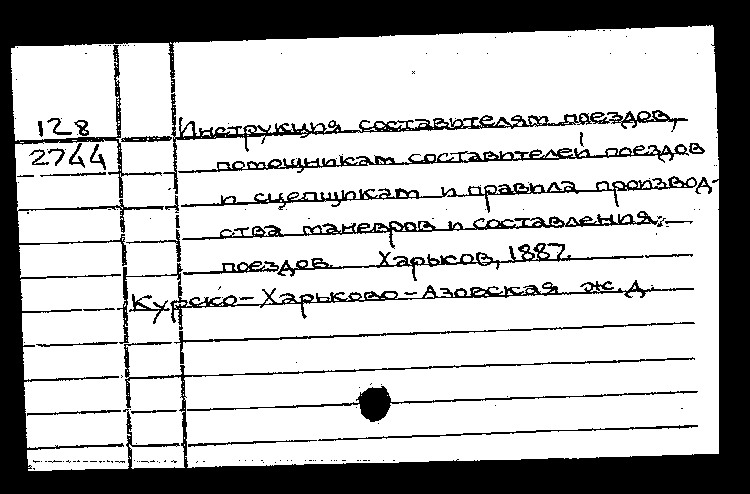 128
2744
Инструкция составителям поездов,
помощникам составителей поездов
и сцепщикам и правила производ-
ства маневров и составления
поездов. Харьков, 1887.
Курско-Харьково-Азовская ж.д.